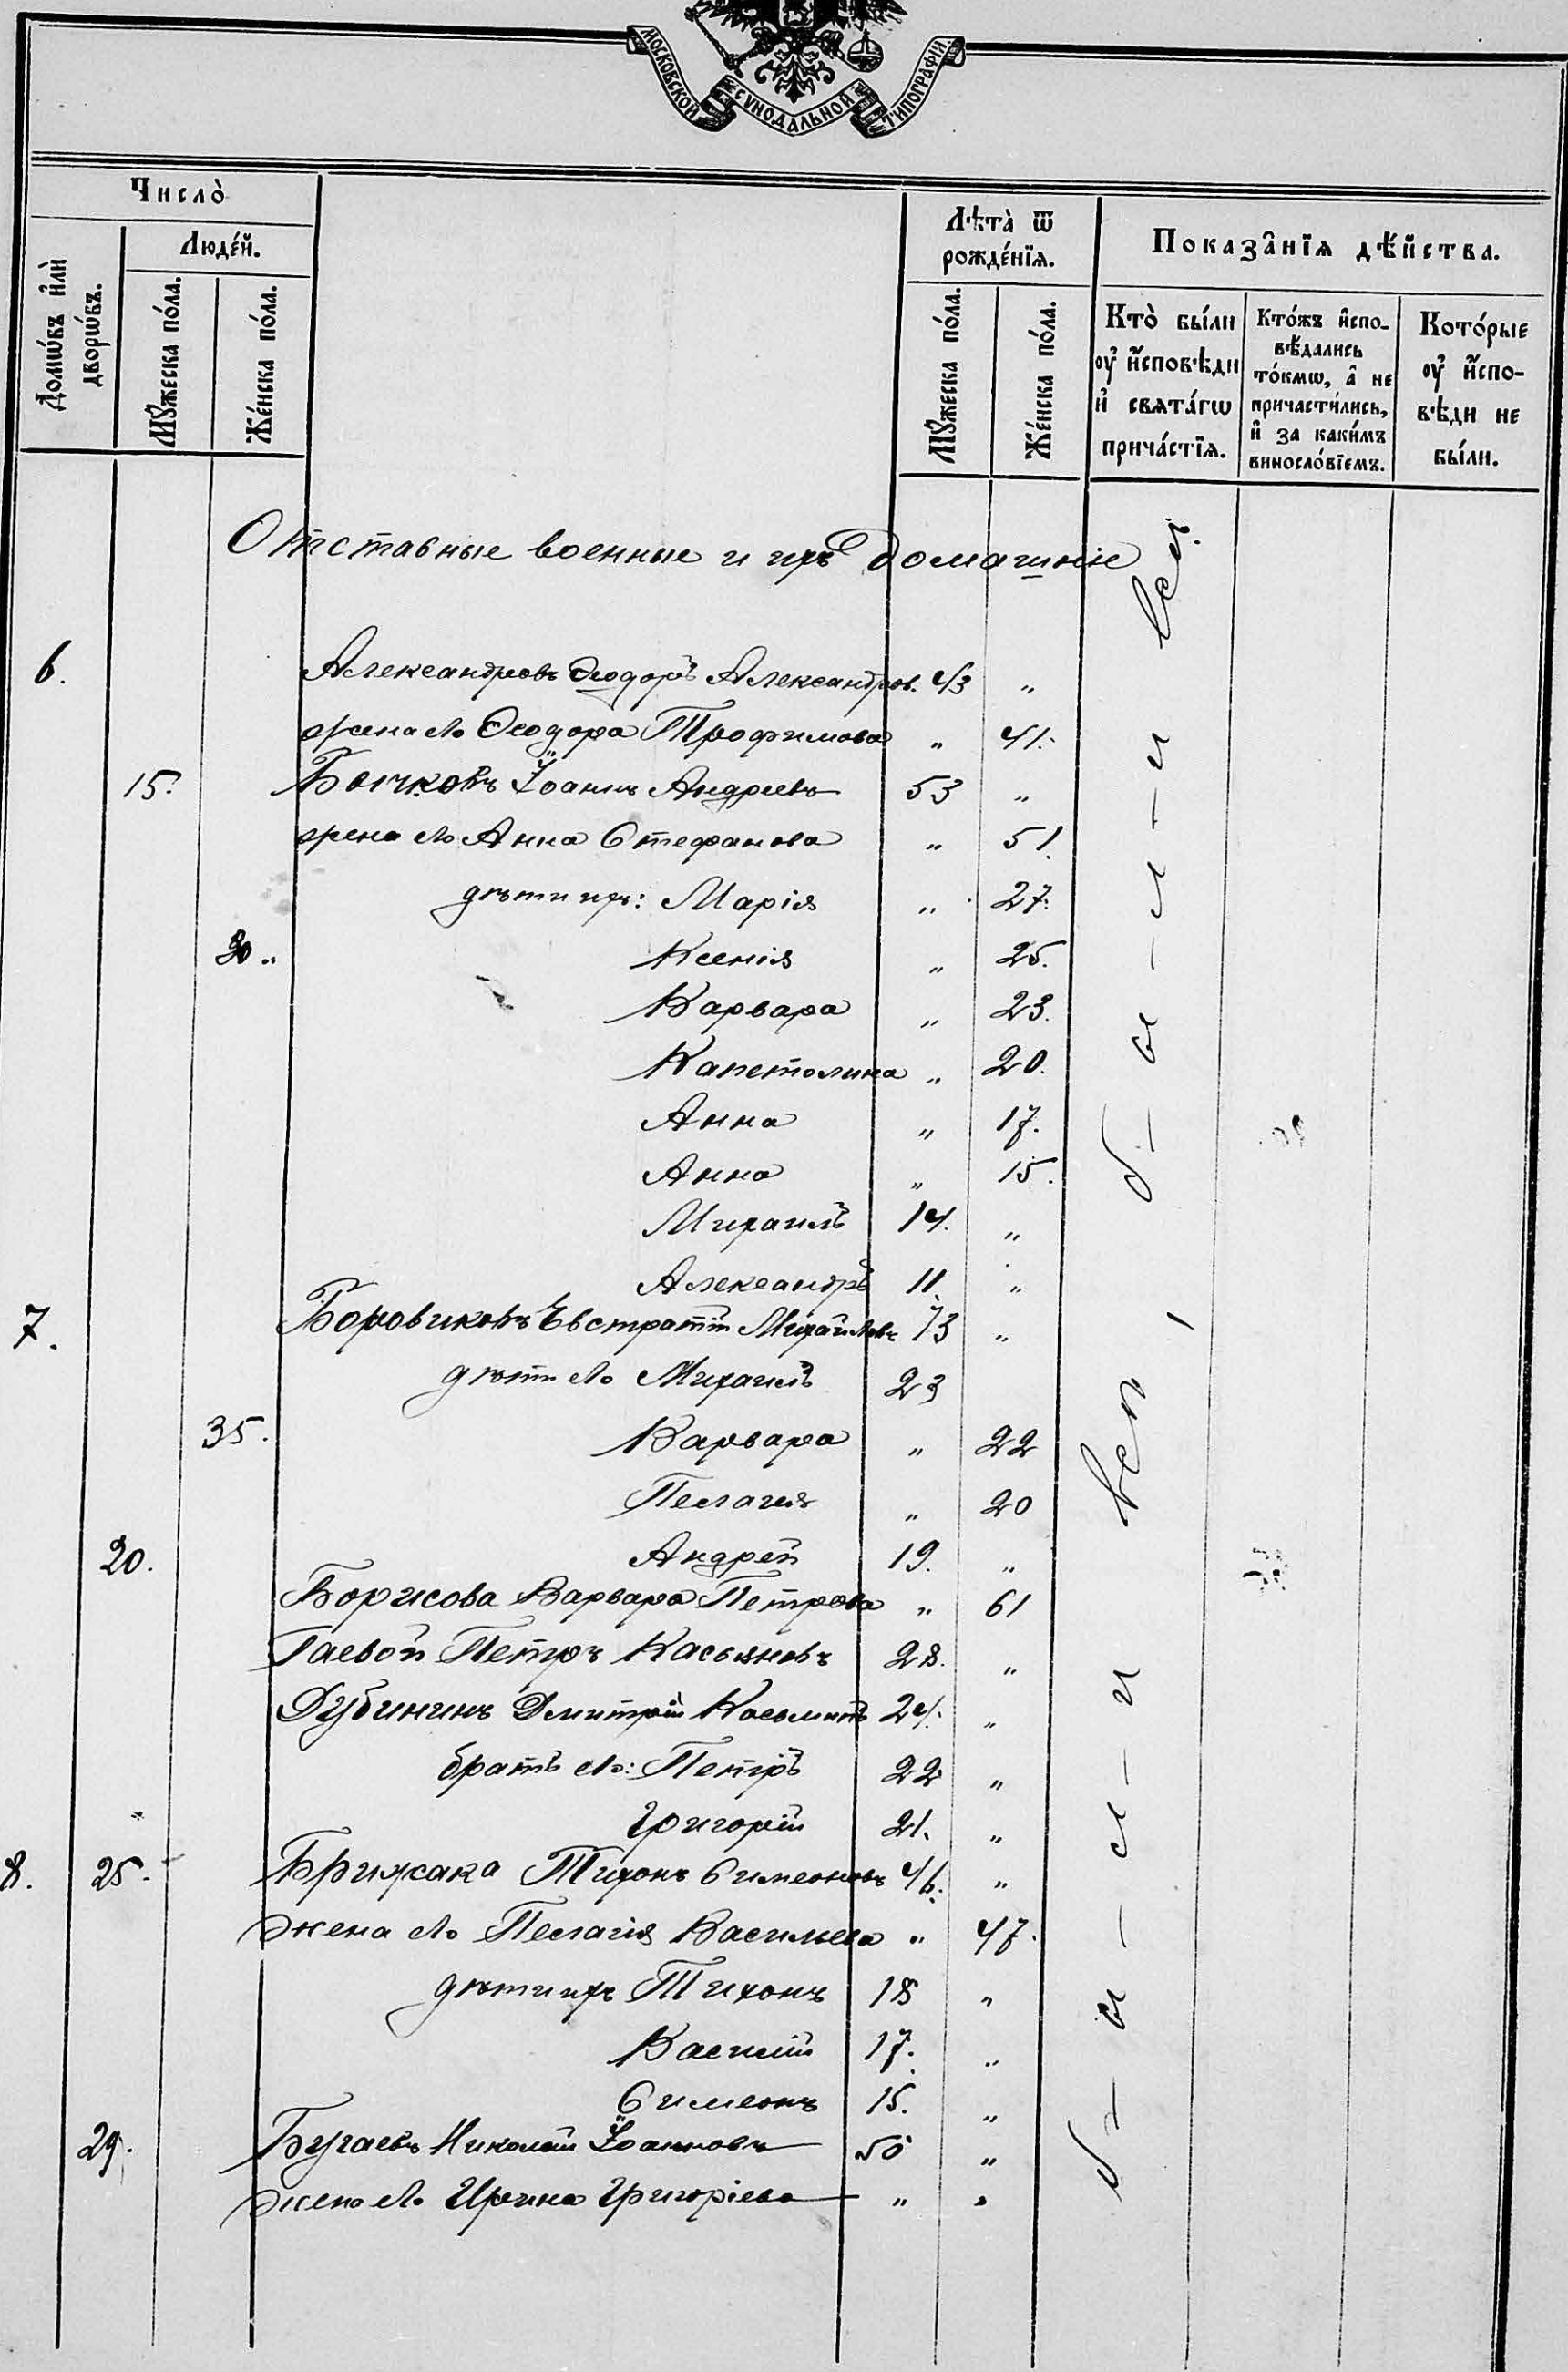 МОСКОВСКОЙ СѴНОДАЛЬНОЙ ТИПОГРАФІИ
Число̀
Домѡ́въ и҆лѝ дворѡ́въ.
Люде́й.
Мꙋ́жеска по́ла.
Же́нска по́ла.
Лѣ́та ѿ рожде́нїѧ.
Мꙋ́жеска по́ла.
Же́нска по́ла.
Показа̑нїѧ дѣ́йства.
Кто̀ бы́ли оу҆ и҆́сповѣди и҆ свѧта́гѡ прича́стїѧ.
Кто́жъ и҆сповѣ́дались то́кмѡ, а҆ не причасти́лись, и҆ за каки́мъ винослⷪ҇вїемъ.
Кото́рые оу҆ и҆́сповѣди не бы́ли.
Отставные военные и ихъ домашніе
6. Александровъ Ѳеодоръ Александров. 43 "
жена его Ѳеодора Трофимова " 41.
15. Бычковъ Іоаннъ Андреевъ 53 "
жена его Анна Стефанова " 51.
дѣти ихъ: Марія " 27.
30. Ксенія " 25.
Варвара " 23.
Капетолина " 20.
Анна " 17.
Анна " 15.
Михаилъ 14. "
Александръ 11. "
7. Боровиковъ Евстратій Михайловъ 73 "
дѣти его Михаилъ 23
35. Варвара " 22
Пелагия " 20
20. Андрей 19. "
Борисова Варвара Петрова " 61
Гаевой Петръ Касьяновъ 28. "
Дубининъ Дмитрій Косьминъ 24. "
братъ его: Петръ 22 "
Григорій 21. "
8. 25. Брижака Тихонъ Симеоновъ 46. "
жена его Пелагія Васильева " 47.
дѣти ихъ Тихонъ 18 "
Василій 17. "
Симеонъ 15. "
29. Бугаевъ Николай Іоанновъ 50 "
жена его Ирина Григоріева " "
всѣ б-ы-л-и
вси б-ы-л-и